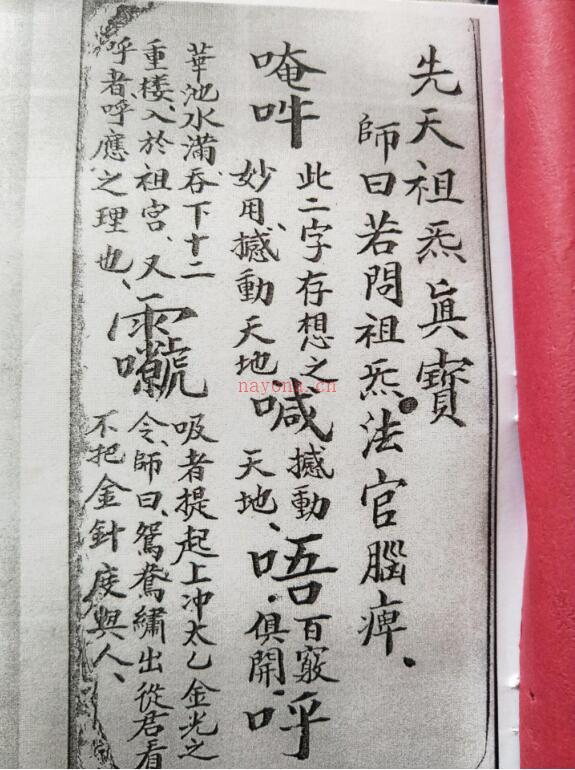 先天祖炁眞寶
師曰若問祖炁法官腦痺、
唵吽
此二字存想之
妙用、撼動天地
喊
撼動
天地、
唔
百竅
俱開、
呼
華池水滿、吞下十二
重楼、入於祖宫、又
呼者呼應之理也、
吸者提起上冲太乙金光之
令、師曰、鴛鴦繡出從君看
不把金針度與人、
nayona.cn